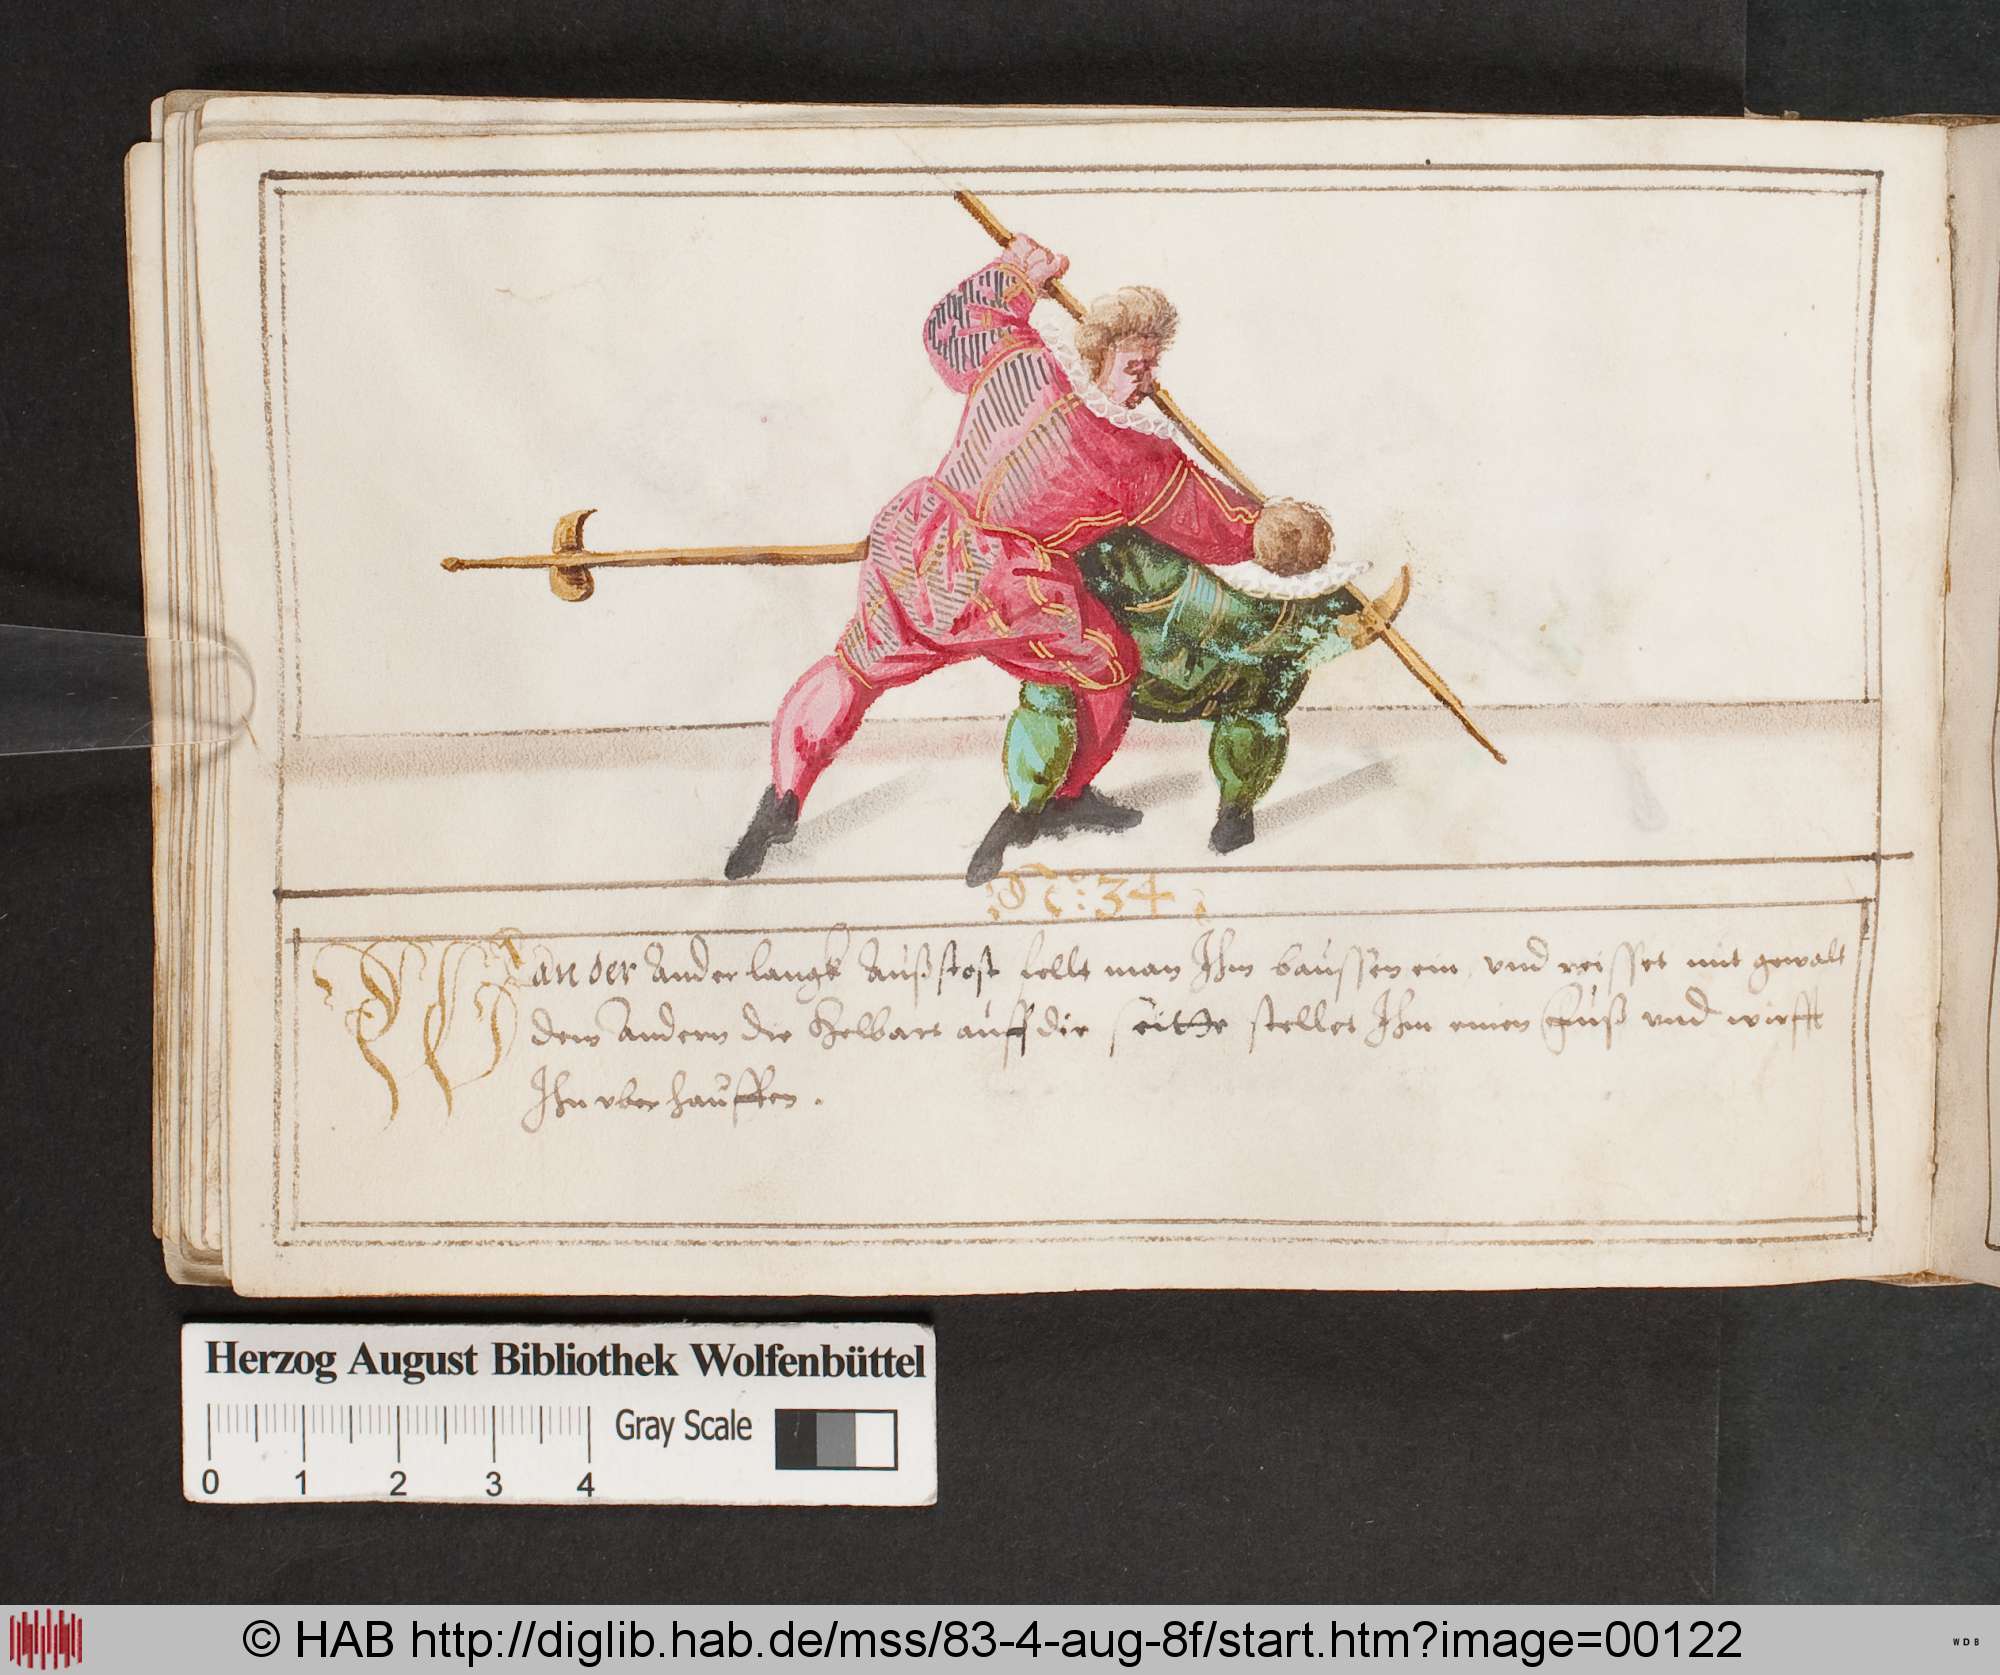 No: 34
Wan der Ander langk Außstost fellt man Ihm baussen ein, vnd reisset mit gewalt
dem Andern die Helbart auff die seitte stellet Ihm einen Fuß vnd wirfft
Ihn vber hauffen.
Herzog August Bibliothek Wolfenbüttel
Gray Scale
0 1 2 3 4
© HAB http://diglib.hab.de/mss/83-4-aug-8f/start.htm?image=00122
WDB